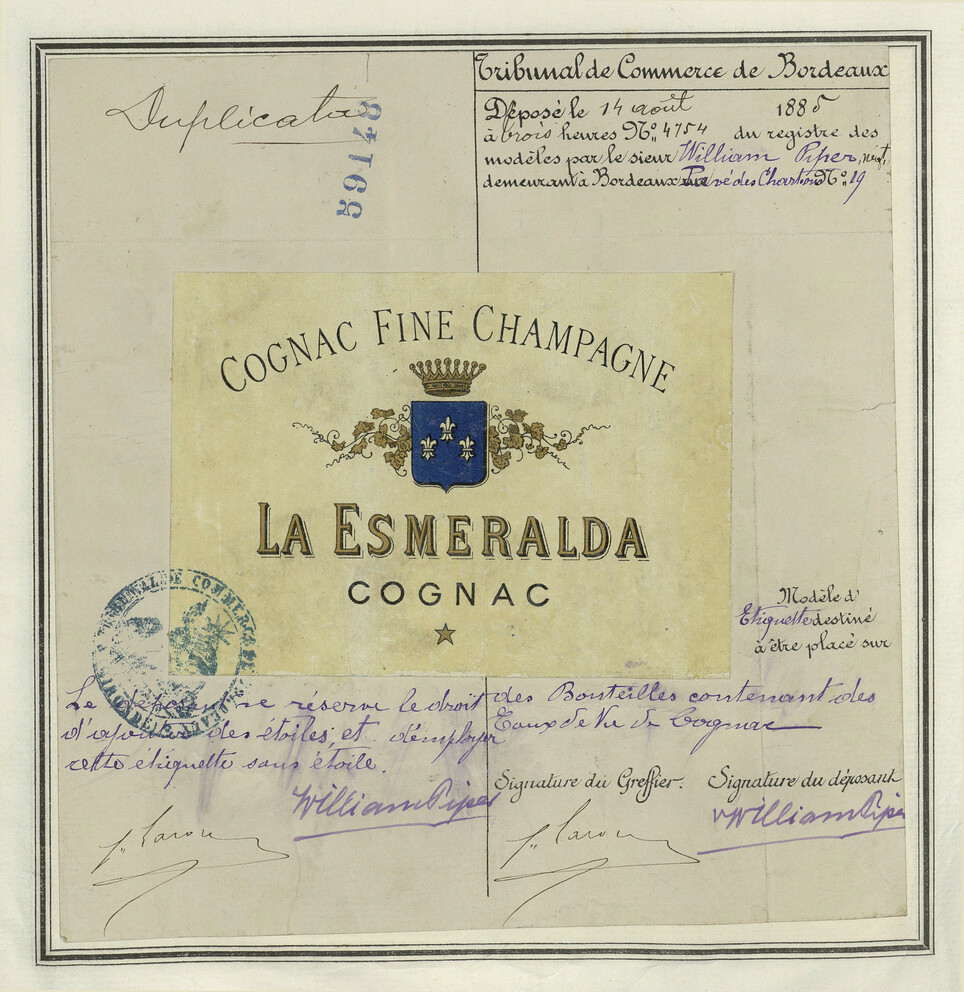 Duplicata
59148
Tribunal de Commerce de Bordeaux
Déposé le 14 août 1885
à trois heures No. 4754 du registre des
modèles par le sieur William Piper, négt.
demeurant à Bordeaux Pavé des Chartrons No. 19
COGNAC FINE CHAMPAGNE
LA ESMERALDA
COGNAC
Modèle d'
Etiquette destiné
à être placé sur
TRIBUNAL DE COMMERCE DE BORDEAUX
GIRONDE
Le déposant se réserve le droit
d'ajouter des étoiles, et d'employer
cette étiquette sans étoile.
des Bouteilles contenant des
Eaux de Vie de Cognac
William Piper
Signature du Greffier. Signature du déposant
William Piper